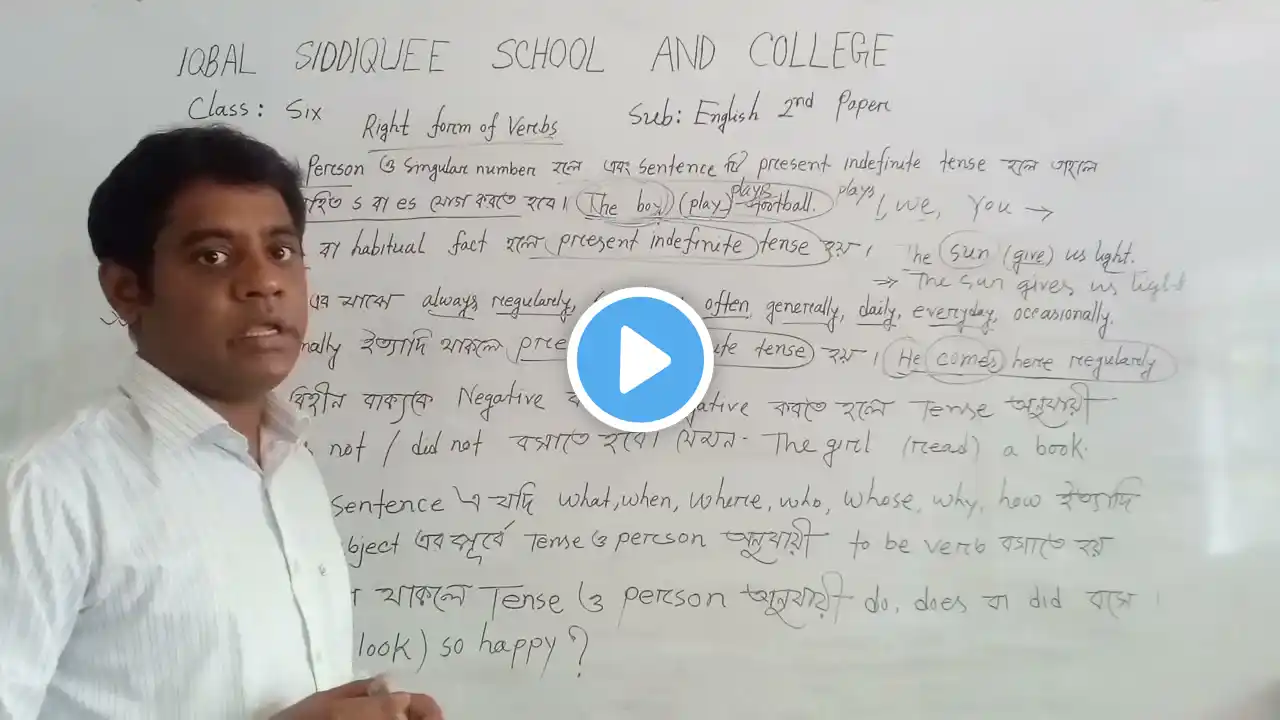 IQBAL SIDDIQUEE SCHOOL AND COLLEGE
Class: Six Sub: English 2nd Paper
Right form of Verbs
Person ও Singular number হলে এবং sentence টি present indefinite tense হলে তাহলে
s বা es যোগ করতে হবে। The boy (play) football. plays plays I, we, You →
বা habitual fact হলে present indefinite tense হয়। The sun (give) us light.
⇒ The sun gives us light
এর মাঝে always regularly, often, generally, daily, everyday, occasionally.
ইত্যাদি থাকলে tense হয়। He comes here regularly
বিহীন বাক্যকে Negative করতে হলে Tense অনুযায়ী
not / did not বসাতে হবে। যেমন- The girl (read) a book.
sentence এ যদি what, when, where, who, whose, why, how ইত্যাদি
এর পূর্বে Tense ও person অনুযায়ী to be verb বসাতে হয়
থাকলে Tense ও person অনুযায়ী do, does বা did বসে।
look) so happy?